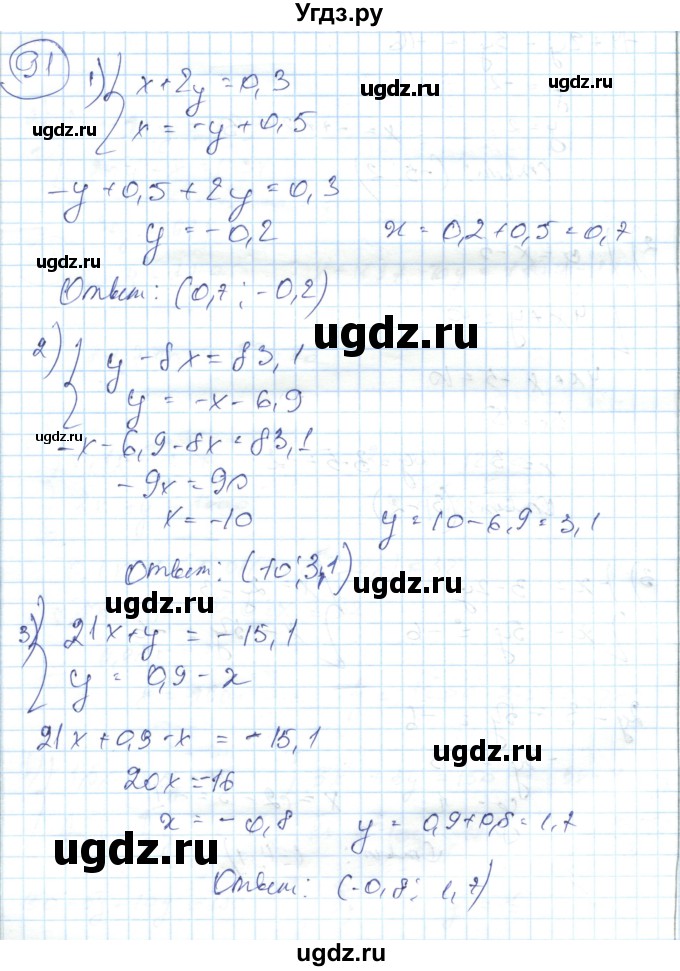 Угдз.ру
91
1) { x+2y=0,3
x = -y+0,5
-y+0,5+2y=0,3
y = -0,2 x = 0,2+0,5=0,7
Ответ: (0,7; -0,2)
2) { y-8x=83,1
y = -x-6,9
-x-6,9-8x=83,1
-9x=90
x=-10 y=10-6,9=3,1
Ответ: (-10; 3,1)
3) { 21x+y = -15,1
y = 0,9-x
21x+0,9-x = -15,1
20x=-16
x = -0,8 y = 0,9+0,8=1,7
Ответ: (-0,8; 1,7)
ugdz.ru
ugdz.ru
ugdz.ru
ugdz.ru
ugdz.ru
ugdz.ru
ugdz.ru
ugdz.ru
ugdz.ru
ugdz.ru
ugdz.ru
ugdz.ru
ugdz.ru